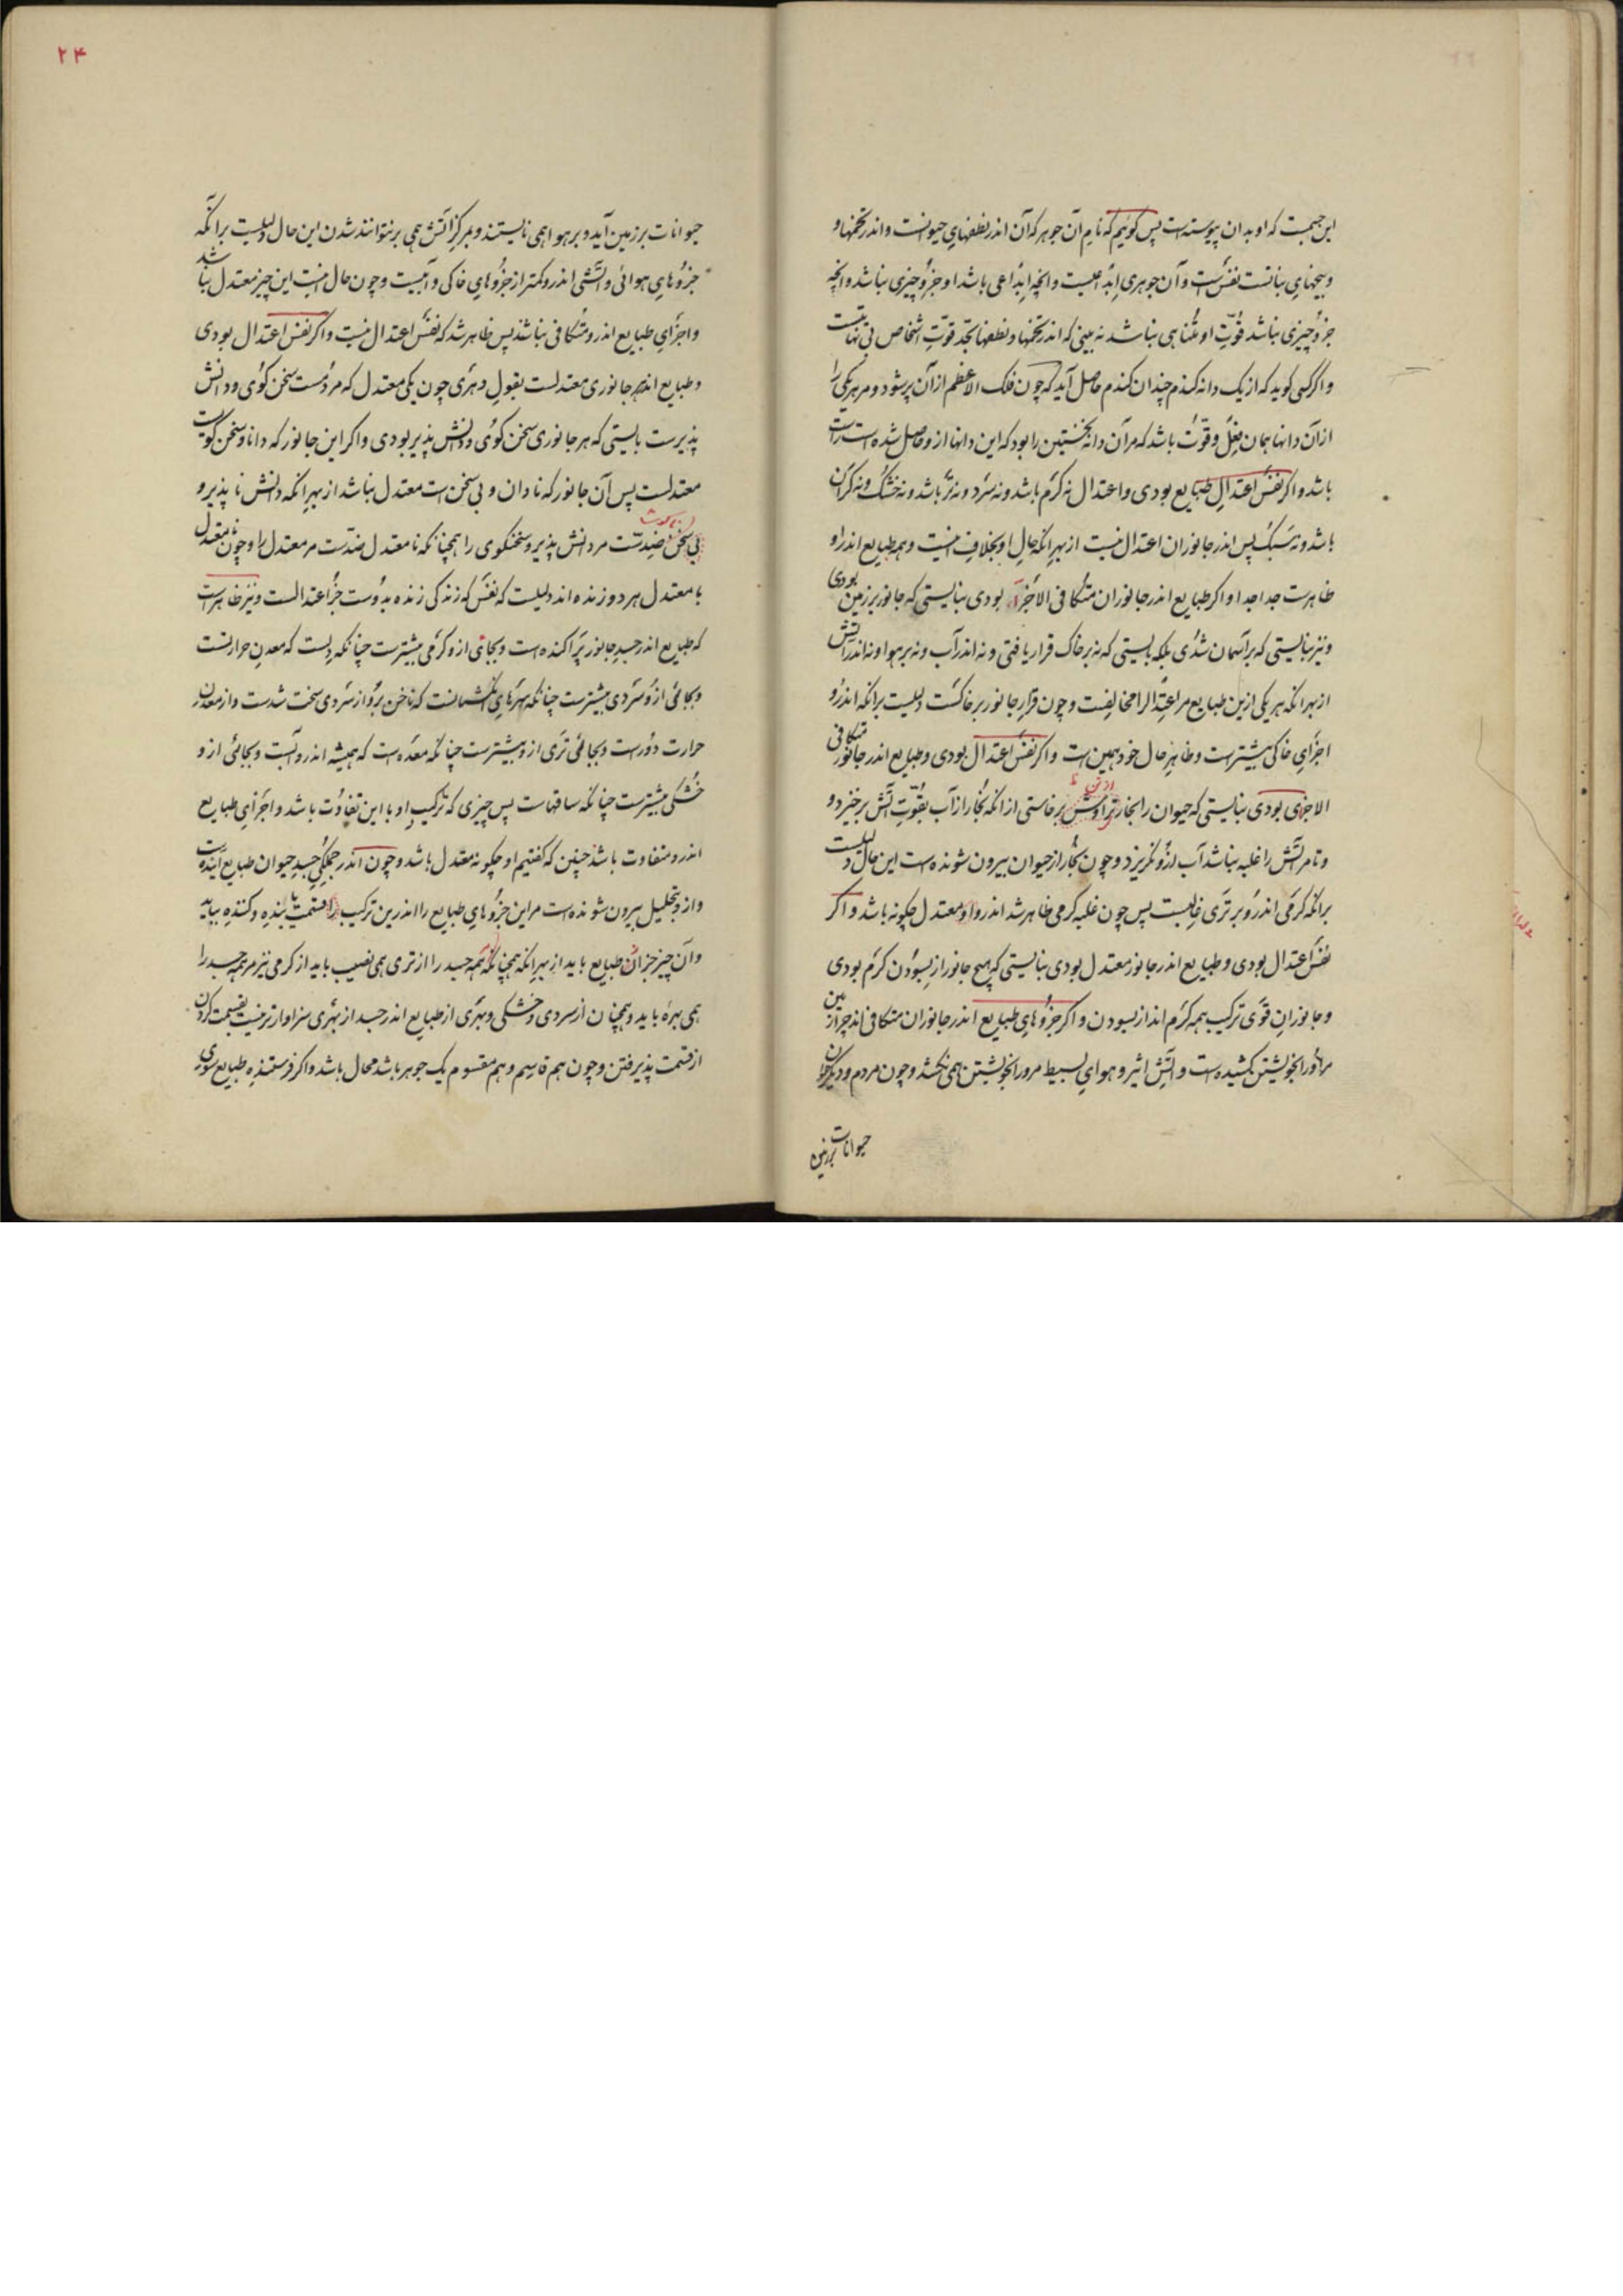 این جسمیت که او بدان پیوسته است پس گوییم که نام آن جوهر که آن اندر نطفهای حیوانست و اندر تخمها و
و بیخهای نباتست نفس است و آن جوهری ابداعیست و انچه ابداعی باشد او جزو چیزی نباشد و انچه
جزو چیزی نباشد قوّت او متناهی نباشد نه بینی که اندر تخمها و نطفها بحدّ قوّت اشخاص بی نهایتست
و اگر کسی گوید که از یک دانه گندم چندان گندم حاصل آید که چون فلک الاعظم از آن پر شود و مر هر یکی را
از آن دانها همان فعل و قوّت باشد که مر آن دانه نخستین را بود که این دانها ازو حاصل شده است راست
باشد و اگر نفس اعتدال طبایع بودی و اعتدال نه گرم باشد و نه سرد و نه تر باشد و نه خشک و نه گران
باشد و نه سبک پس اندر جانوران اعتدال نیست از بهر انکه حال او بخلاف اینست و همه طبایع اندر او
ظاهرست جدا جدا و اگر طبایع اندر جانوران متکافی الاجزا بودی نبایستی که جانور بر زمین بودی
و نیز نبایستی که بر آسمان شدی بلکه بایستی که نه بر خاک قرار یافتی و نه اندر آب و نه بر هوا و نه اندر آتش
از بهر انکه هر یکی ازین طبایع مر اعتدال را مخالفست و چون قرار جانور بر خاکست دلیست برانکه اندرو
اجزای خاکی بیشترست و ظاهر حال خود همین است و اگر نفس اعتدال بودی و طبایع اندر جانور متکافی
الاجزای بودی نبایستی که حیوان را بخار تراوش برخاستی از انکه بخار از آب بقوّت آتش برخیزد و
و تا مر آتش را غلبه نباشد آب ازو نگریزد و چون بخار از حیوان بیرون شونده است این حال دلیلست
برانکه گرمی اندرو بر تری غالبست پس چون غلبه گرمی ظاهر شد اندرو او معتدل چگونه باشد و اگر
نفس اعتدال بودی و طبایع اندر جانور معتدل بودی نبایستی که هیچ جانور از بسودن گرم بودی
و جانوران قوی ترکیب همه گرم اند از بسودن و اگر جزوهای طبایع اندر جانوران متکافی اند چرا زمین
مر او را بخویشتن کشیده است و آتش اثیر و هوای بسیط مرورا بخویشتن همی نکشد و چون مردم و دیگر حیوان
حیوانات بر زمین
۲۴
حیوانات بر زمین آید و بر هوا همی نایستند و بمرکز آتش همی بر نتوانند شدن این حال دلیلست برانکه
جزوهای هوائی و آتشی اندرو کمتر از جزوهای خاکی و آبیست و چون حال اینست این چیز معتدل نباشد
و اجزای طبایع اندرو متکافی نباشد پس ظاهر شد که نفس اعتدال نیست و اگر نفس اعتدال بودی
و طبایع اندر جانوری معتدلست بقول دهری چون یکی معتدل که مردمست سخن گوی و دانش
پذیرست بایستی که هر جانوری سخن گوی و دانش پذیر بودی و اگر این جانور که دانا و سخن گویست
معتدلست پس آن جانور که نادان و بی سخن است معتدل نباشد از بهر انکه دانش ناپذیر و
بی سخن ضدّست مر دانش پذیر و سخنگوی را همچنانکه نامعتدل ضدّست مر معتدل را و چون نامعتدل
با معتدل هر دو زنده اند دلیلست که نفس که زندگی زنده بدوست جز اعتدالست و نیز ظاهر است
که طبایع اندر جسد جانور پراکنده است و بجائی ازو گرمی بیشترست چنانکه دلست که معدن حرارتست
و بجائی ازو سردی بیشترست چنانکه سرهای انگشتانست که ناخن برو از سردی سخت شدست و از معدن
حرارت دورست و بجائی تری ازو بیشترست چنانکه معده است که همیشه اندرو آبست و بجائی ازو
خشکی بیشترست چنانکه ساقهاست پس چیزی که ترکیب او با این تفاوت باشد و اجزای طبایع
اندرو متفاوت باشد چنین که گفتیم او چگونه معتدل باشد و چون اندر جملگی جسد حیوان طبایع آینده است
و ازو بتحلیل بیرون شونده است مر این جزوهای طبایع را اندرین ترکیب قسمت یابنده و کننده بباید
و آن چیز جز آن طبایع باید از بهر انکه همچنانکه همه جسد را از تری همی نصیب باید از گرمی نیز مر همه جسد را
همی بهره باید و همچنان از سردی و خشکی و بهری از طبایع اندر جسد از بهری سزاوارتر نیست بقسمت کردن
از قسمت پذیرفتن و چون هم قاسم و هم مقسوم یک جوهر باشد محال باشد و اگر فرستنده طبایع سوی